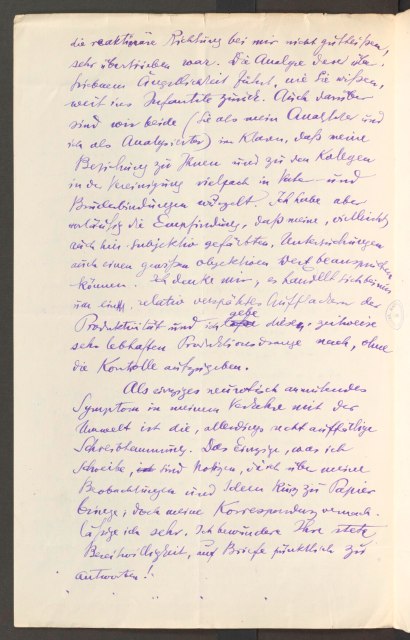 die reaktionäre Richtung bei mir nicht gutheißen,
sehr übertrieben war. Die Analyse dieser
Ängstlichkeit führt, wie Sie wissen,
weit ins Infantile zurück. Auch darüber
sind wir beide (Sie als mein Analytiker und
ich als Analysierter) im Klaren, daß meine
Beziehung zu Ihnen und zu den Kollegen
in der Vereinigung vielfach in Vater- und
Bruderbindungen wurzelt. Ich habe aber
vorläufig die Empfindung, daß meine, vielleicht
auch hier subjektiv gefärbten, Untersuchungen
auch einen gewissen objektiven Wert beanspruchen
können. Ich denke mir, es handelt sich bei mir
um ein relativ verspätetes Aufflackern der
Produktivität und ich gebe diesem, zeitweise
sehr lebhaften Produktionsdrange nach, ohne
die Kontrolle aufzugeben.
Als einziges neurotisch anmutendes
Symptom in meinem Verkehr mit der
Umwelt ist die, allerdings recht auffällige
Schreibhemmung. Das Einzige, was ich
schreibe, sind Notizen, die ich über meine
Beobachtungen und Ideen kurz zu Papier
bringe; doch meine Korrespondenz vernach-
läßige ich sehr. Ich bewundere Ihre stete
Bereitwilligkeit, auf Briefe pünktlich zu
antworten!